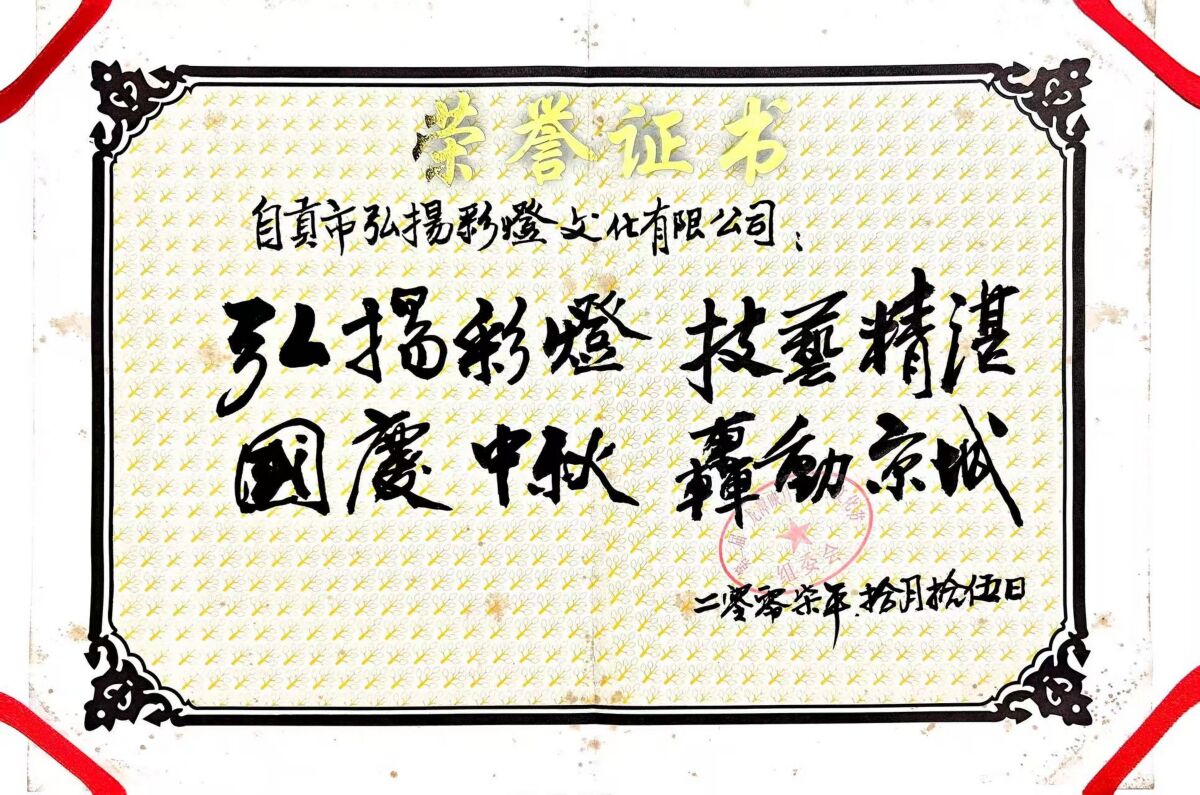 荣誉证书
自貢市弘揚彩燈文化有限公司：
弘揚彩燈 技藝精湛
國慶中秋 轟動京城
组委会
二零零柒年拾月拾伍日